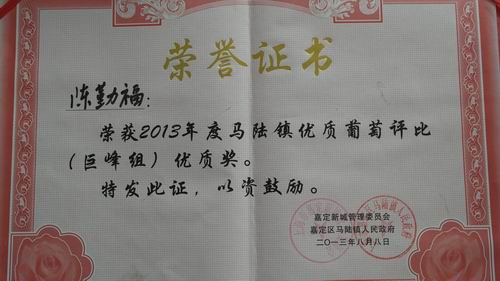 荣誉证书
陈勤福:
荣获2013年度马陆镇优质葡萄评比
(巨峰组)优质奖。
特发此证,以资鼓励。
嘉定新城管理委员会
嘉定区马陆镇人民政府
二〇一三年八月八日